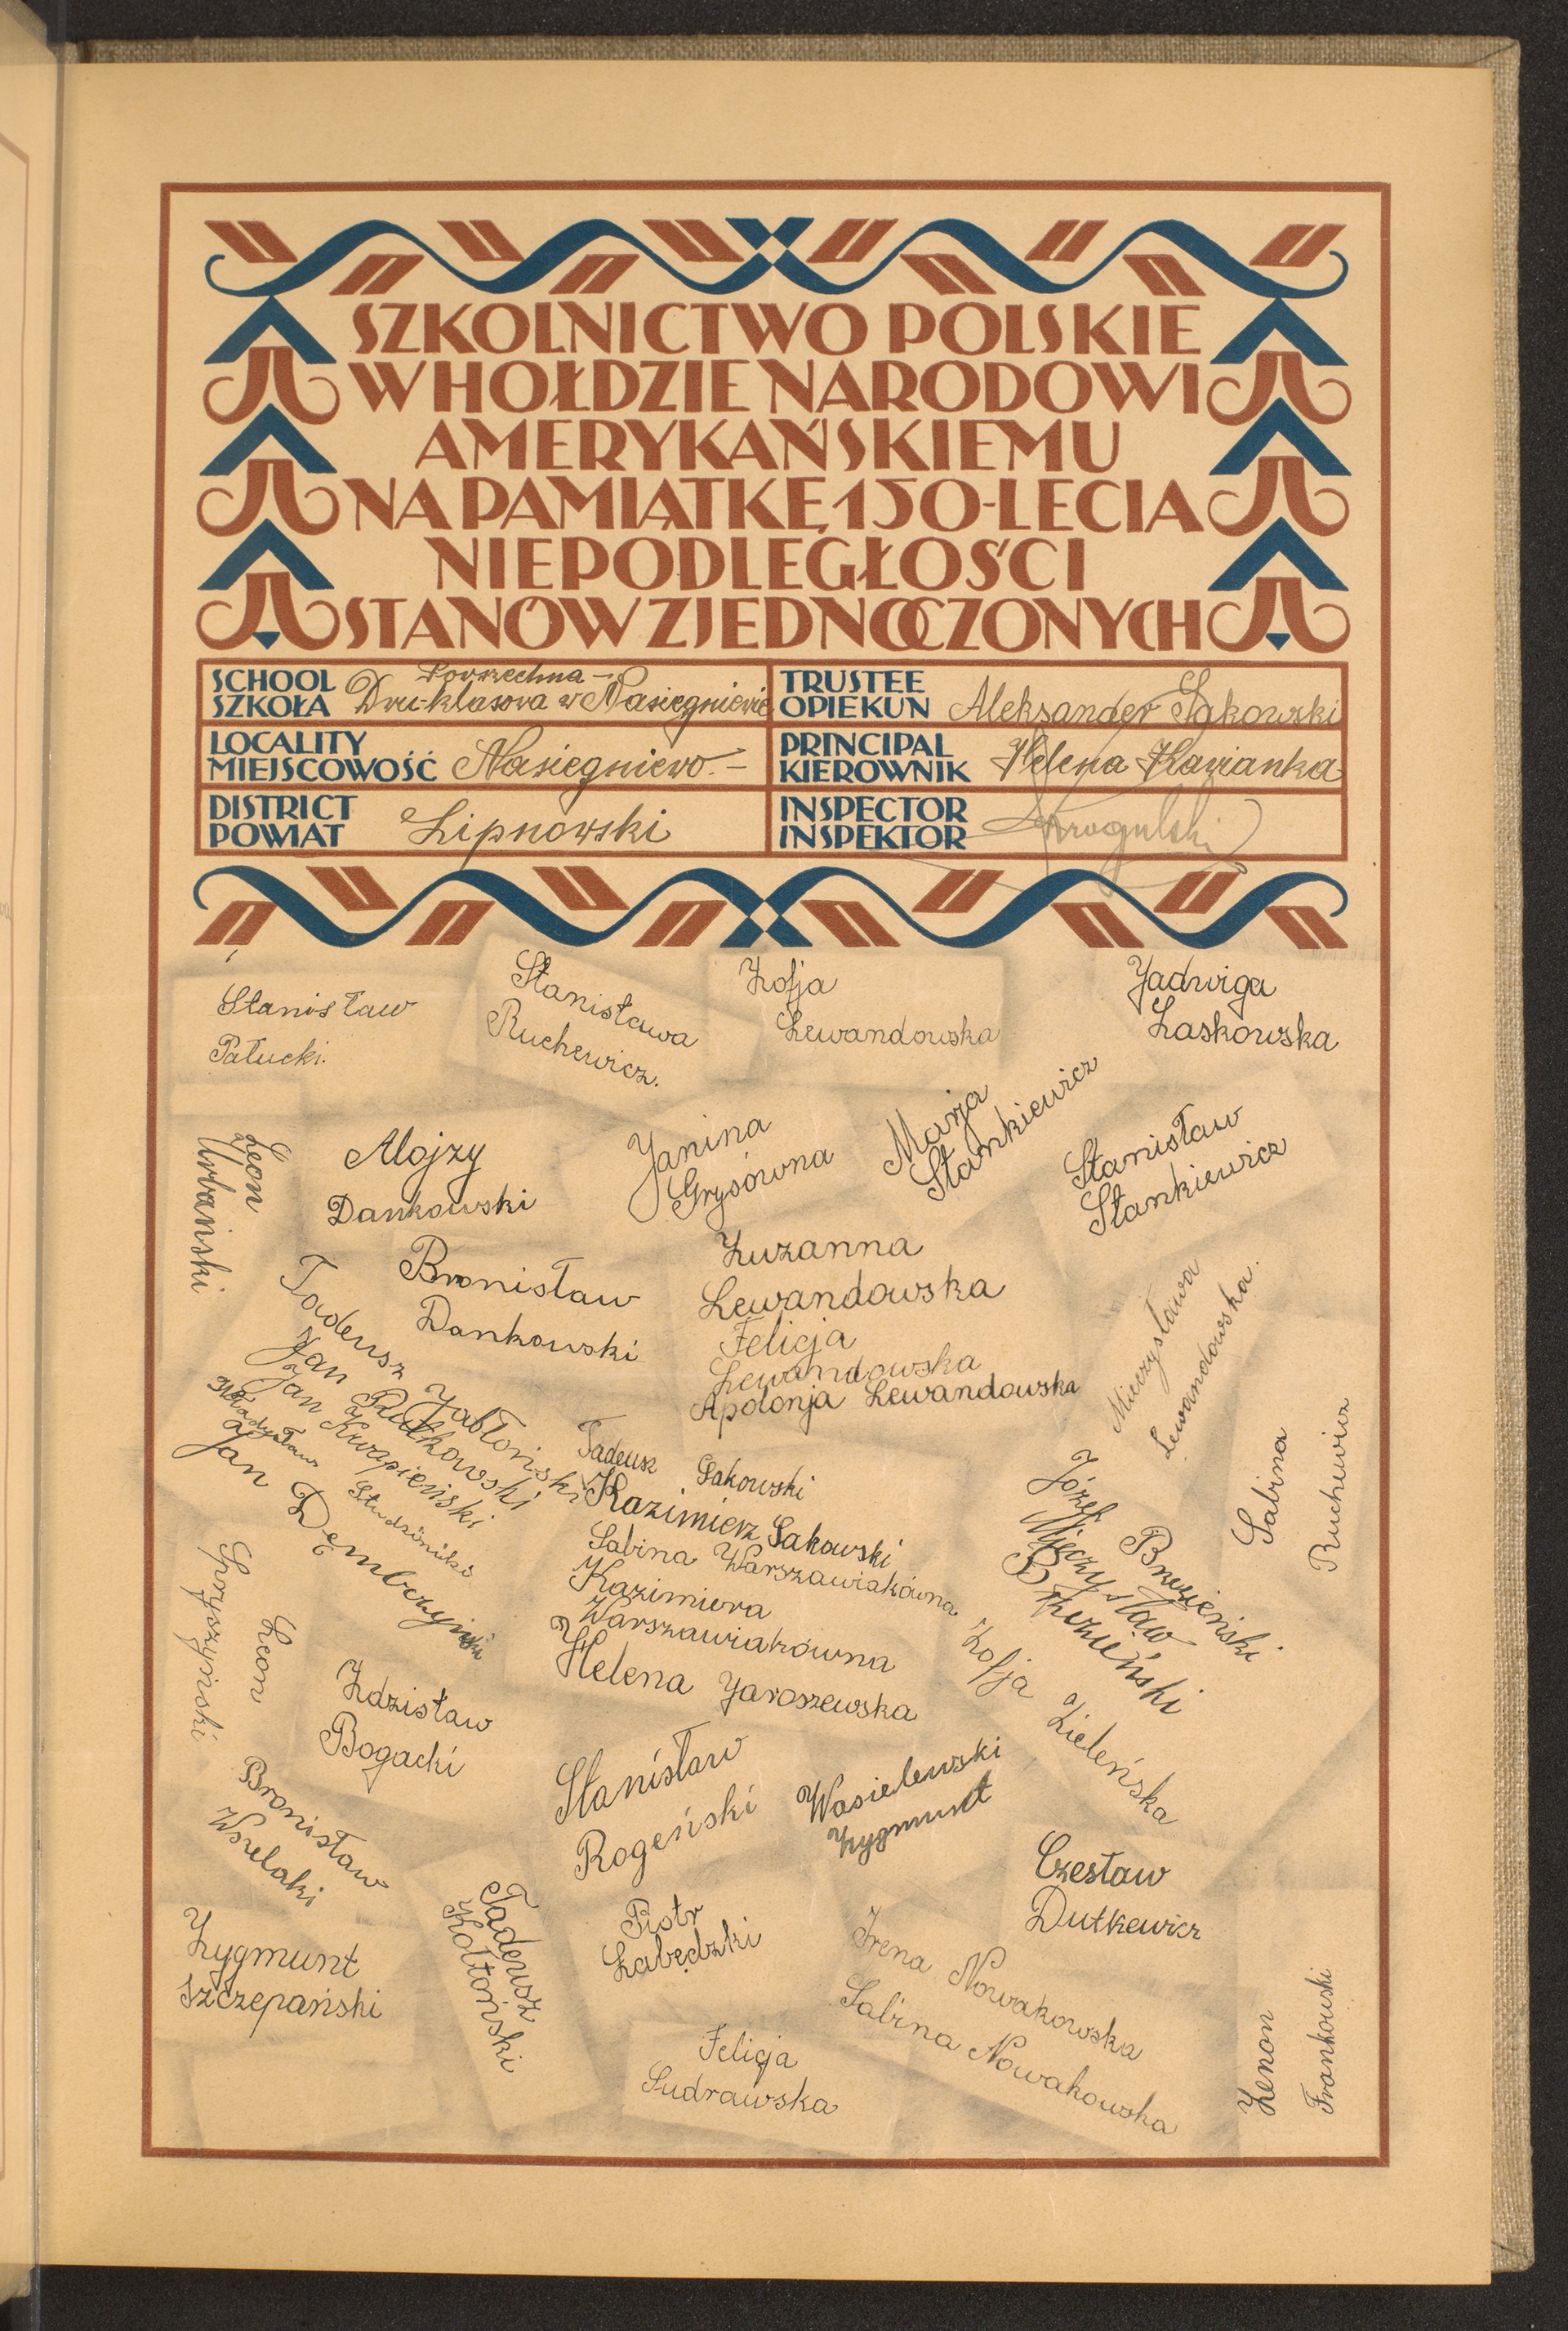 SZKOLNICTWO POLSKIE
W HOŁDZIE NARODOWI
AMERYKAŃSKIEMU
NA PAMIĄTKĘ 150-LECIA
NIEPODLEGŁOŚCI
STANÓW ZJEDNOCZONYCH
SCHOOL
SZKOŁA
Powszechna –
Dwu-klasowa w Nasiegniewie
TRUSTEE
OPIEKUN
Aleksander Sakowski
LOCALITY
MIEJSCOWOŚĆ
Nasiegniewo. –
PRINCIPAL
KIEROWNIK
Helena Kawianka
DISTRICT
POWIAT
Lipnowski
INSPECTOR
INSPEKTOR
Stanisław
Pałucki.
Stanisława
Ruchewicz.
Zofja
Lewandowska
Jadwiga
Laskowska
Leon
Urbański
Alojzy
Dankowski
Janina
Grysówna
Marja
Stankiewicz
Stanisław
Stankiewicz
Bronisław
Dankowski
Zuzanna
Lewandowska
Felicja
Lewandowska
Apolonja Lewandowska
Mieczysława
Lewandowska.
Tadeusz Jabłoński
Jan Rutkowski
Jan Kwapieński
Władysław
Jan Dembczyński
Tadeusz Sakowski
Kazimierz Sakowski
Sabina Warszawiakówna
Kazimiera
Warszawiakówna
Helena Jaroszewska
Sabina
Ruchewicz
Józef Brzezieński
Mieczysław
Brzezieński
Leon
Zdzisław
Bogacki
Zofja Zieleńska
Stanisław
Rogeński
Wasielewski
Zygmunt
Bronisław
Wszelaki
Czesław
Dutkewicz
Zygmunt
Szczepański
Tadeusz
Kołtoński
Piotr
Łabędzki
Irena Nowakowska
Sabina Nowakowska
Felicja
Sudrawska
Zenon
Frankowski